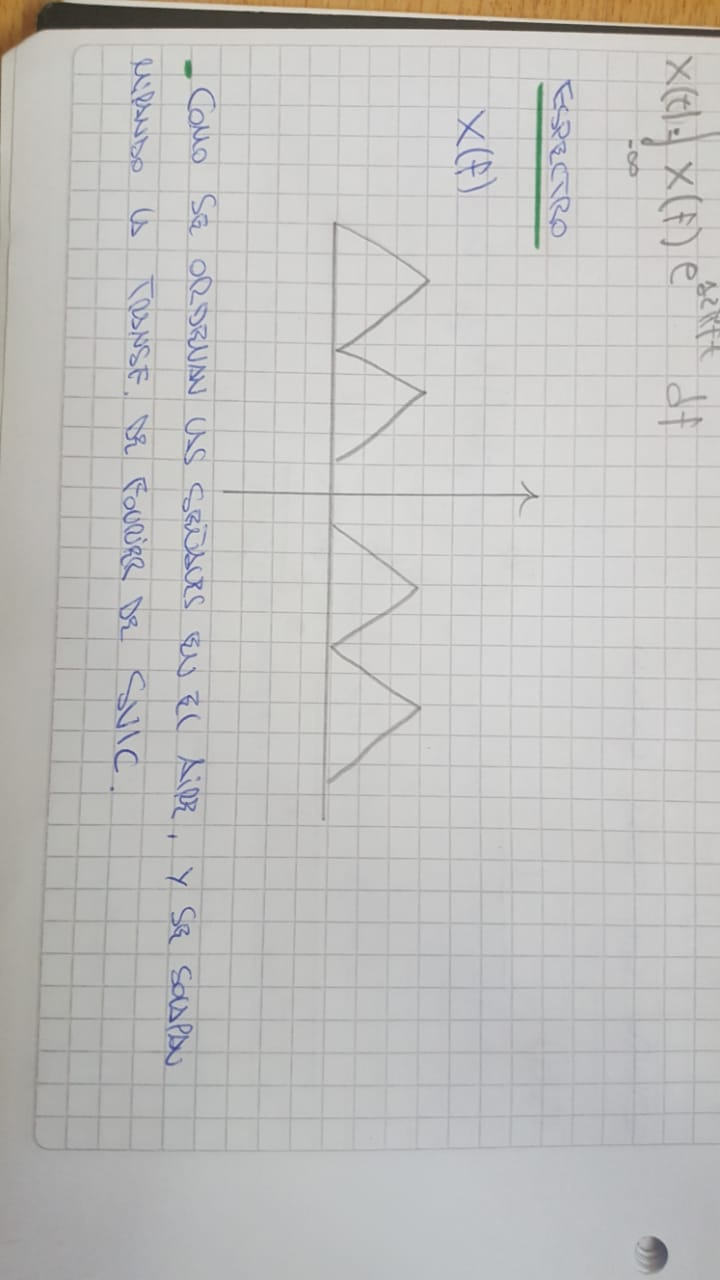 x(t) = ∫ X(f) e^j2πft df
-∞
ESPECTRO
X(f)
- COMO SE ORDENAN LAS SEÑALES EN EL AIRE, Y SE SOLAPAN
MIRANDO LA TRANSF. DE FOURIER DE